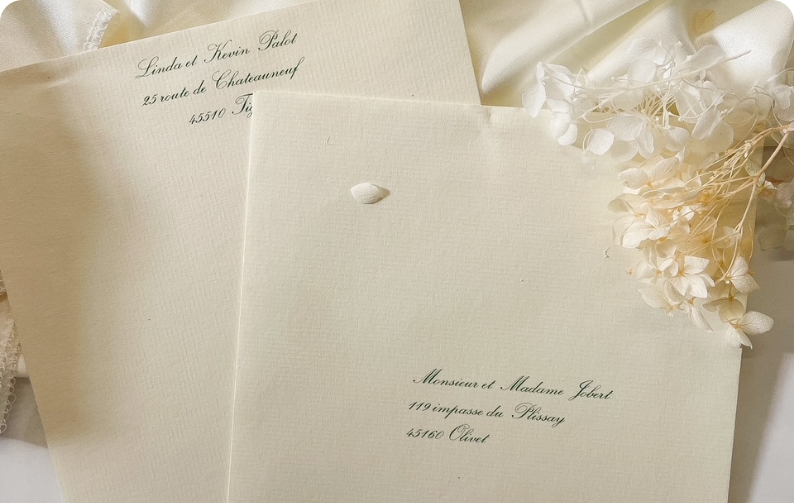 Linda et Kevin Palot
25 route de Chateauneuf
45510
Monsieur et Madame Jobert
119 impasse du Plissay
45160 Olivet